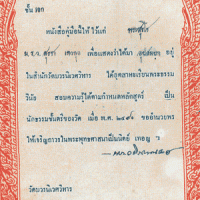 ชั้น เอก
หนังสือผู้มอบให้ไว้แก่
ม.ร.ว. สุรชา เพื่อแสดงว่าได้มา อยู่
ในสำนักวัดบวรนิเวศวิหาร ได้อุตสาหะเรียนพระธรรม
วินัย สอบความรู้ได้ตามกำหนดหลักสูตร เป็น
นักธรรมชั้นตรีของวัด เมื่อ พ.ศ. ขออำนวยพร
ให้เจริญถาวรในพระพุทธศาสนาเป็นนิตย์ เทอญ ๖
วัดบวรนิเวศวิหาร